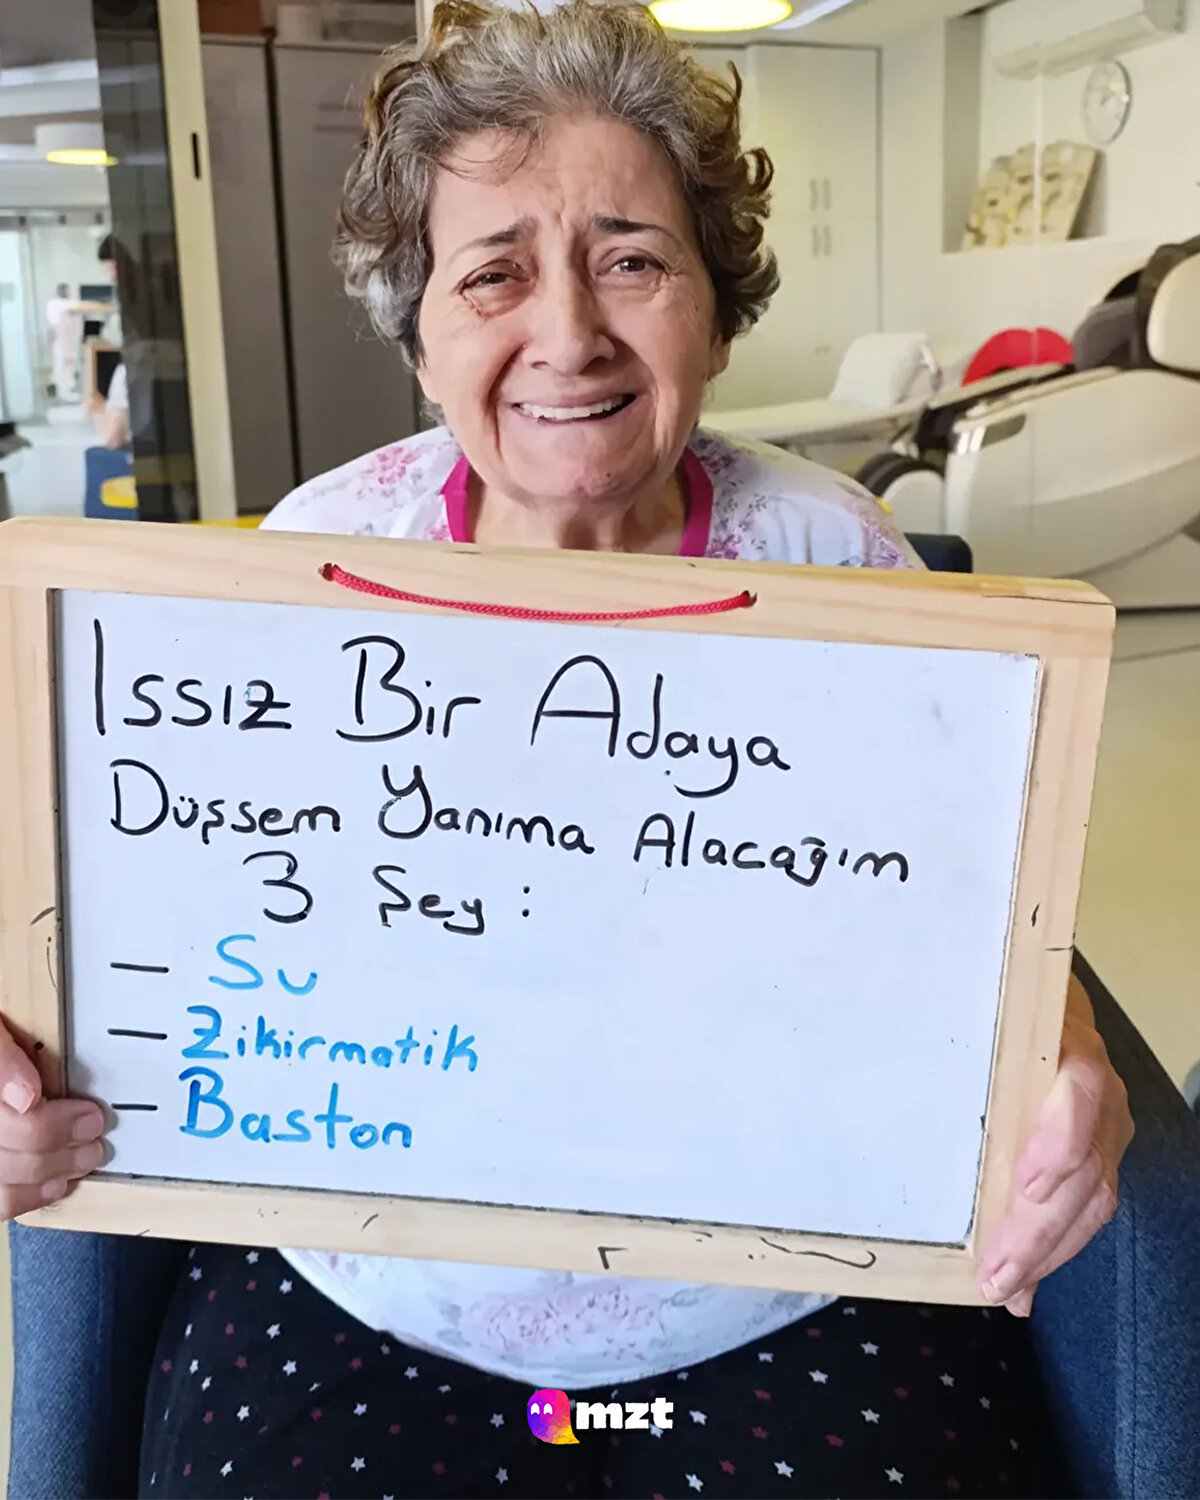 Issız Bir Adaya
Düşsem Yanıma Alacağım
3 Şey :
- Su
- Zikirmatik
- Baston
mzt